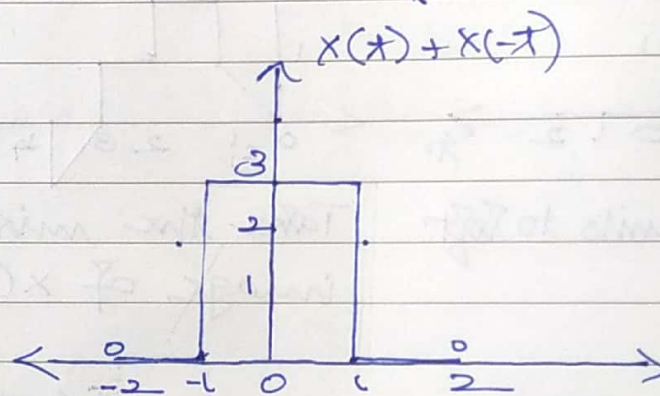 x(t) + x(-t)
3
2
1
0 0
-2 -1 0 1 2